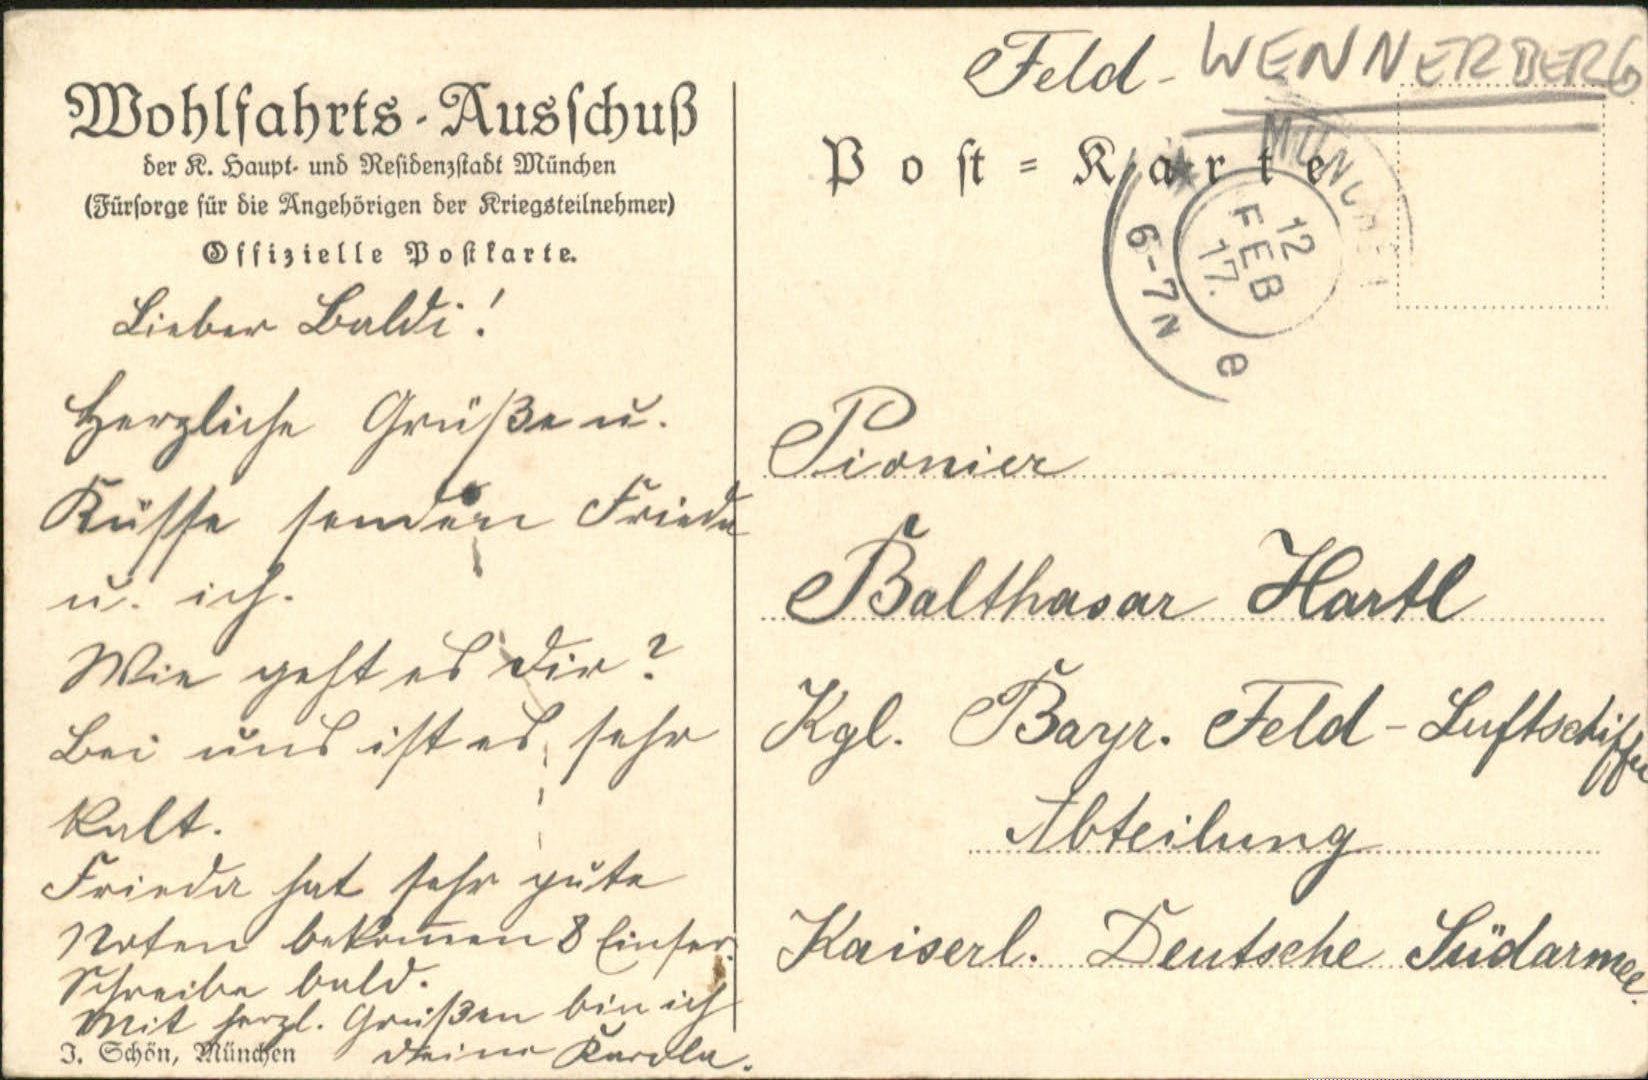 Wohlfahrts-Ausschuß
der K. Haupt- und Residenzstadt München
(Fürsorge für die Angehörigen der Kriegsteilnehmer)
Offizielle Postkarte.
Lieber Baldi!
Herzliche Grüße u.
Küsse senden Frieda
u. ich.
Wie geht es Dir?
Bei uns ist es sehr
kalt.
Frieda hat sehr gute
Noten bekommen 8 Einser.
Schreibe bald.
Mit herzl. Grüßen bin ich
Deine Karola.
J. Schön, München
Feld-
WENNERBERG
Post=Karte
MÜNCHEN
12
FEB
17.
6-7N
e
Pionier
Balthasar Hartl
Kgl. Bayr. Feld-Luftschiffer
Abteilung
Kaiserl. Deutsche Südarmee.